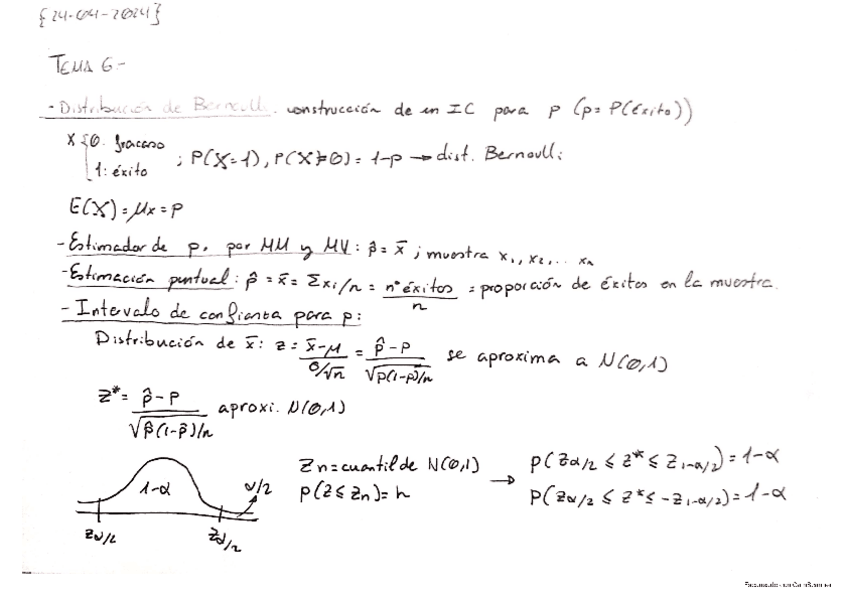 {24-04-2024}
TEMA 6.-
- Distribución de Bernoulli. construcción de un IC para p (p= P(éxito))
X { 0: fracaso
1: éxito ; P(X=1), P(X≠0) = 1-p → dist. Bernoulli
E(X) = μx = p
- Estimador de p, por MM y MV: p̂ = x̄ ; muestra x₁, x₂, ... xₙ
- Estimación puntual: p̂ = x̄ = Σxi/n = nº éxitos/n = proporción de éxitos en la muestra.
- Intervalo de confianza para p:
Distribución de x̄: z = (x̄-μ)/(σ/√n) = (p̂-p)/√(p(1-p)/n) se aproxima a N(0,1)
Z* = (p̂-p)/√(p̂(1-p̂)/n) aproxi. N(0,1)
Zn = cuantil de N(0,1) → p(zα/2 ≤ z* ≤ z1-α/2) = 1-α
p(Z ≤ Zn) = n
p(zα/2 ≤ z* ≤ -z1-α/2) = 1-α
1-α
α/2
Zα/2
Zα/2